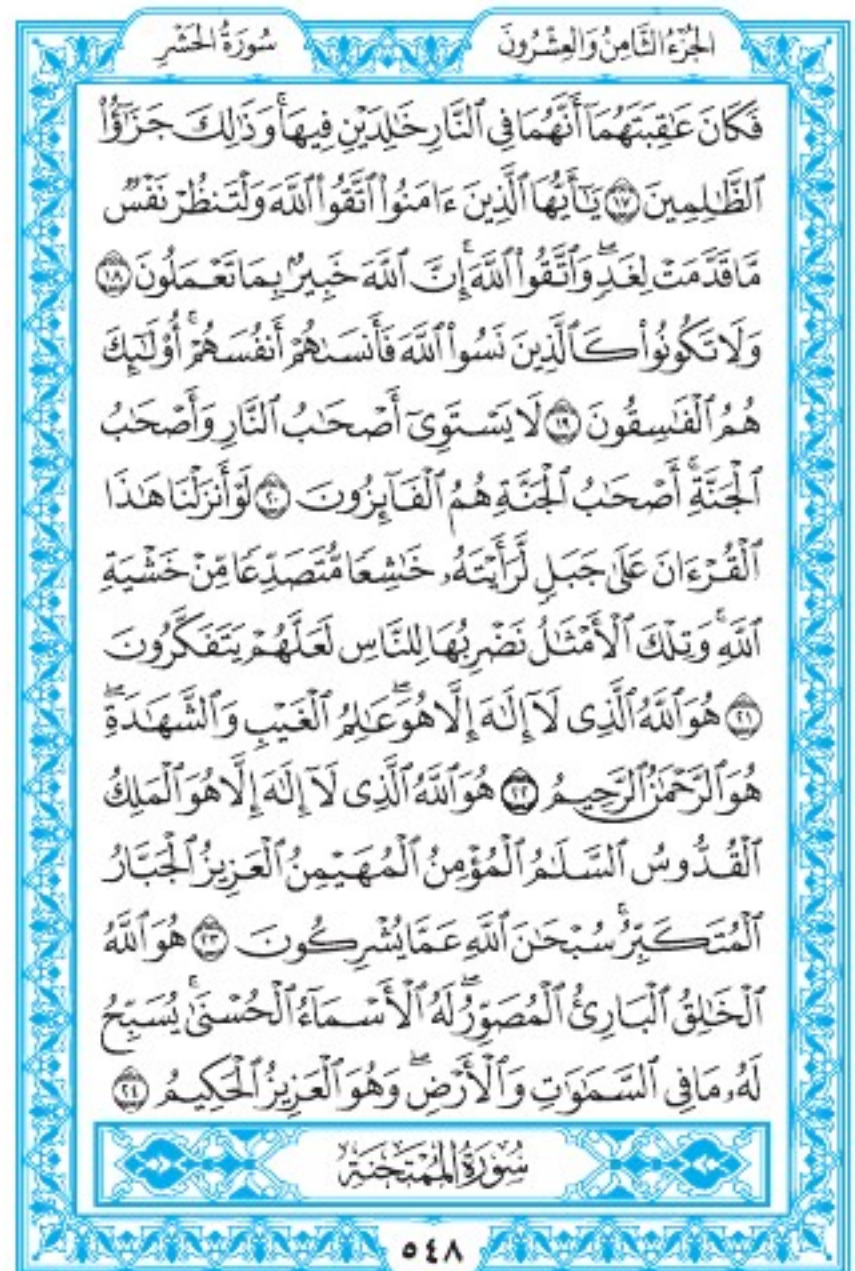 الجُزْءُ الثَّامِنُ وَالعِشْرُونَ سُورَةُ الحَشْرِ
فَكَانَ عَٰقِبَتَهُمَآ أَنَّهُمَا فِي ٱلنَّارِ خَٰلِدَيْنِ فِيهَاۚ وَذَٰلِكَ جَزَٰٓؤُاْ
ٱلظَّٰلِمِينَ ١٧ يَٰٓأَيُّهَا ٱلَّذِينَ ءَامَنُواْ ٱتَّقُواْ ٱللَّهَ وَلْتَنظُرْ نَفْسٌ
مَّا قَدَّمَتْ لِغَدٍۖ وَٱتَّقُواْ ٱللَّهَۚ إِنَّ ٱللَّهَ خَبِيرٌۢ بِمَا تَعْمَلُونَ ١٨
وَلَا تَكُونُواْ كَٱلَّذِينَ نَسُواْ ٱللَّهَ فَأَنسَىٰهُمْ أَنفُسَهُمْۚ أُوْلَٰٓئِكَ
هُمُ ٱلْفَٰسِقُونَ ١٩ لَا يَسْتَوِىٓ أَصْحَٰبُ ٱلنَّارِ وَأَصْحَٰبُ
ٱلْجَنَّةِۚ أَصْحَٰبُ ٱلْجَنَّةِ هُمُ ٱلْفَآئِزُونَ ٢٠ لَوْ أَنزَلْنَا هَٰذَا
ٱلْقُرْءَانَ عَلَىٰ جَبَلٍ لَّرَأَيْتَهُۥ خَٰشِعًا مُّتَصَدِّعًا مِّنْ خَشْيَةِ
ٱللَّهِۚ وَتِلْكَ ٱلْأَمْثَٰلُ نَضْرِبُهَا لِلنَّاسِ لَعَلَّهُمْ يَتَفَكَّرُونَ
٢١ هُوَ ٱللَّهُ ٱلَّذِى لَآ إِلَٰهَ إِلَّا هُوَۖ عَٰلِمُ ٱلْغَيْبِ وَٱلشَّهَٰدَةِۖ
هُوَ ٱلرَّحْمَٰنُ ٱلرَّحِيمُ ٢٢ هُوَ ٱللَّهُ ٱلَّذِى لَآ إِلَٰهَ إِلَّا هُوَ ٱلْمَلِكُ
ٱلْقُدُّوسُ ٱلسَّلَٰمُ ٱلْمُؤْمِنُ ٱلْمُهَيْمِنُ ٱلْعَزِيزُ ٱلْجَبَّارُ
ٱلْمُتَكَبِّرُۚ سُبْحَٰنَ ٱللَّهِ عَمَّا يُشْرِكُونَ ٢٣ هُوَ ٱللَّهُ
ٱلْخَٰلِقُ ٱلْبَارِئُ ٱلْمُصَوِّرُۖ لَهُ ٱلْأَسْمَآءُ ٱلْحُسْنَىٰۚ يُسَبِّحُ
لَهُۥ مَا فِى ٱلسَّمَٰوَٰتِ وَٱلْأَرْضِۖ وَهُوَ ٱلْعَزِيزُ ٱلْحَكِيمُ ٢٤
سُورَةُ المُمْتَحَنَةِ
٥٤٨